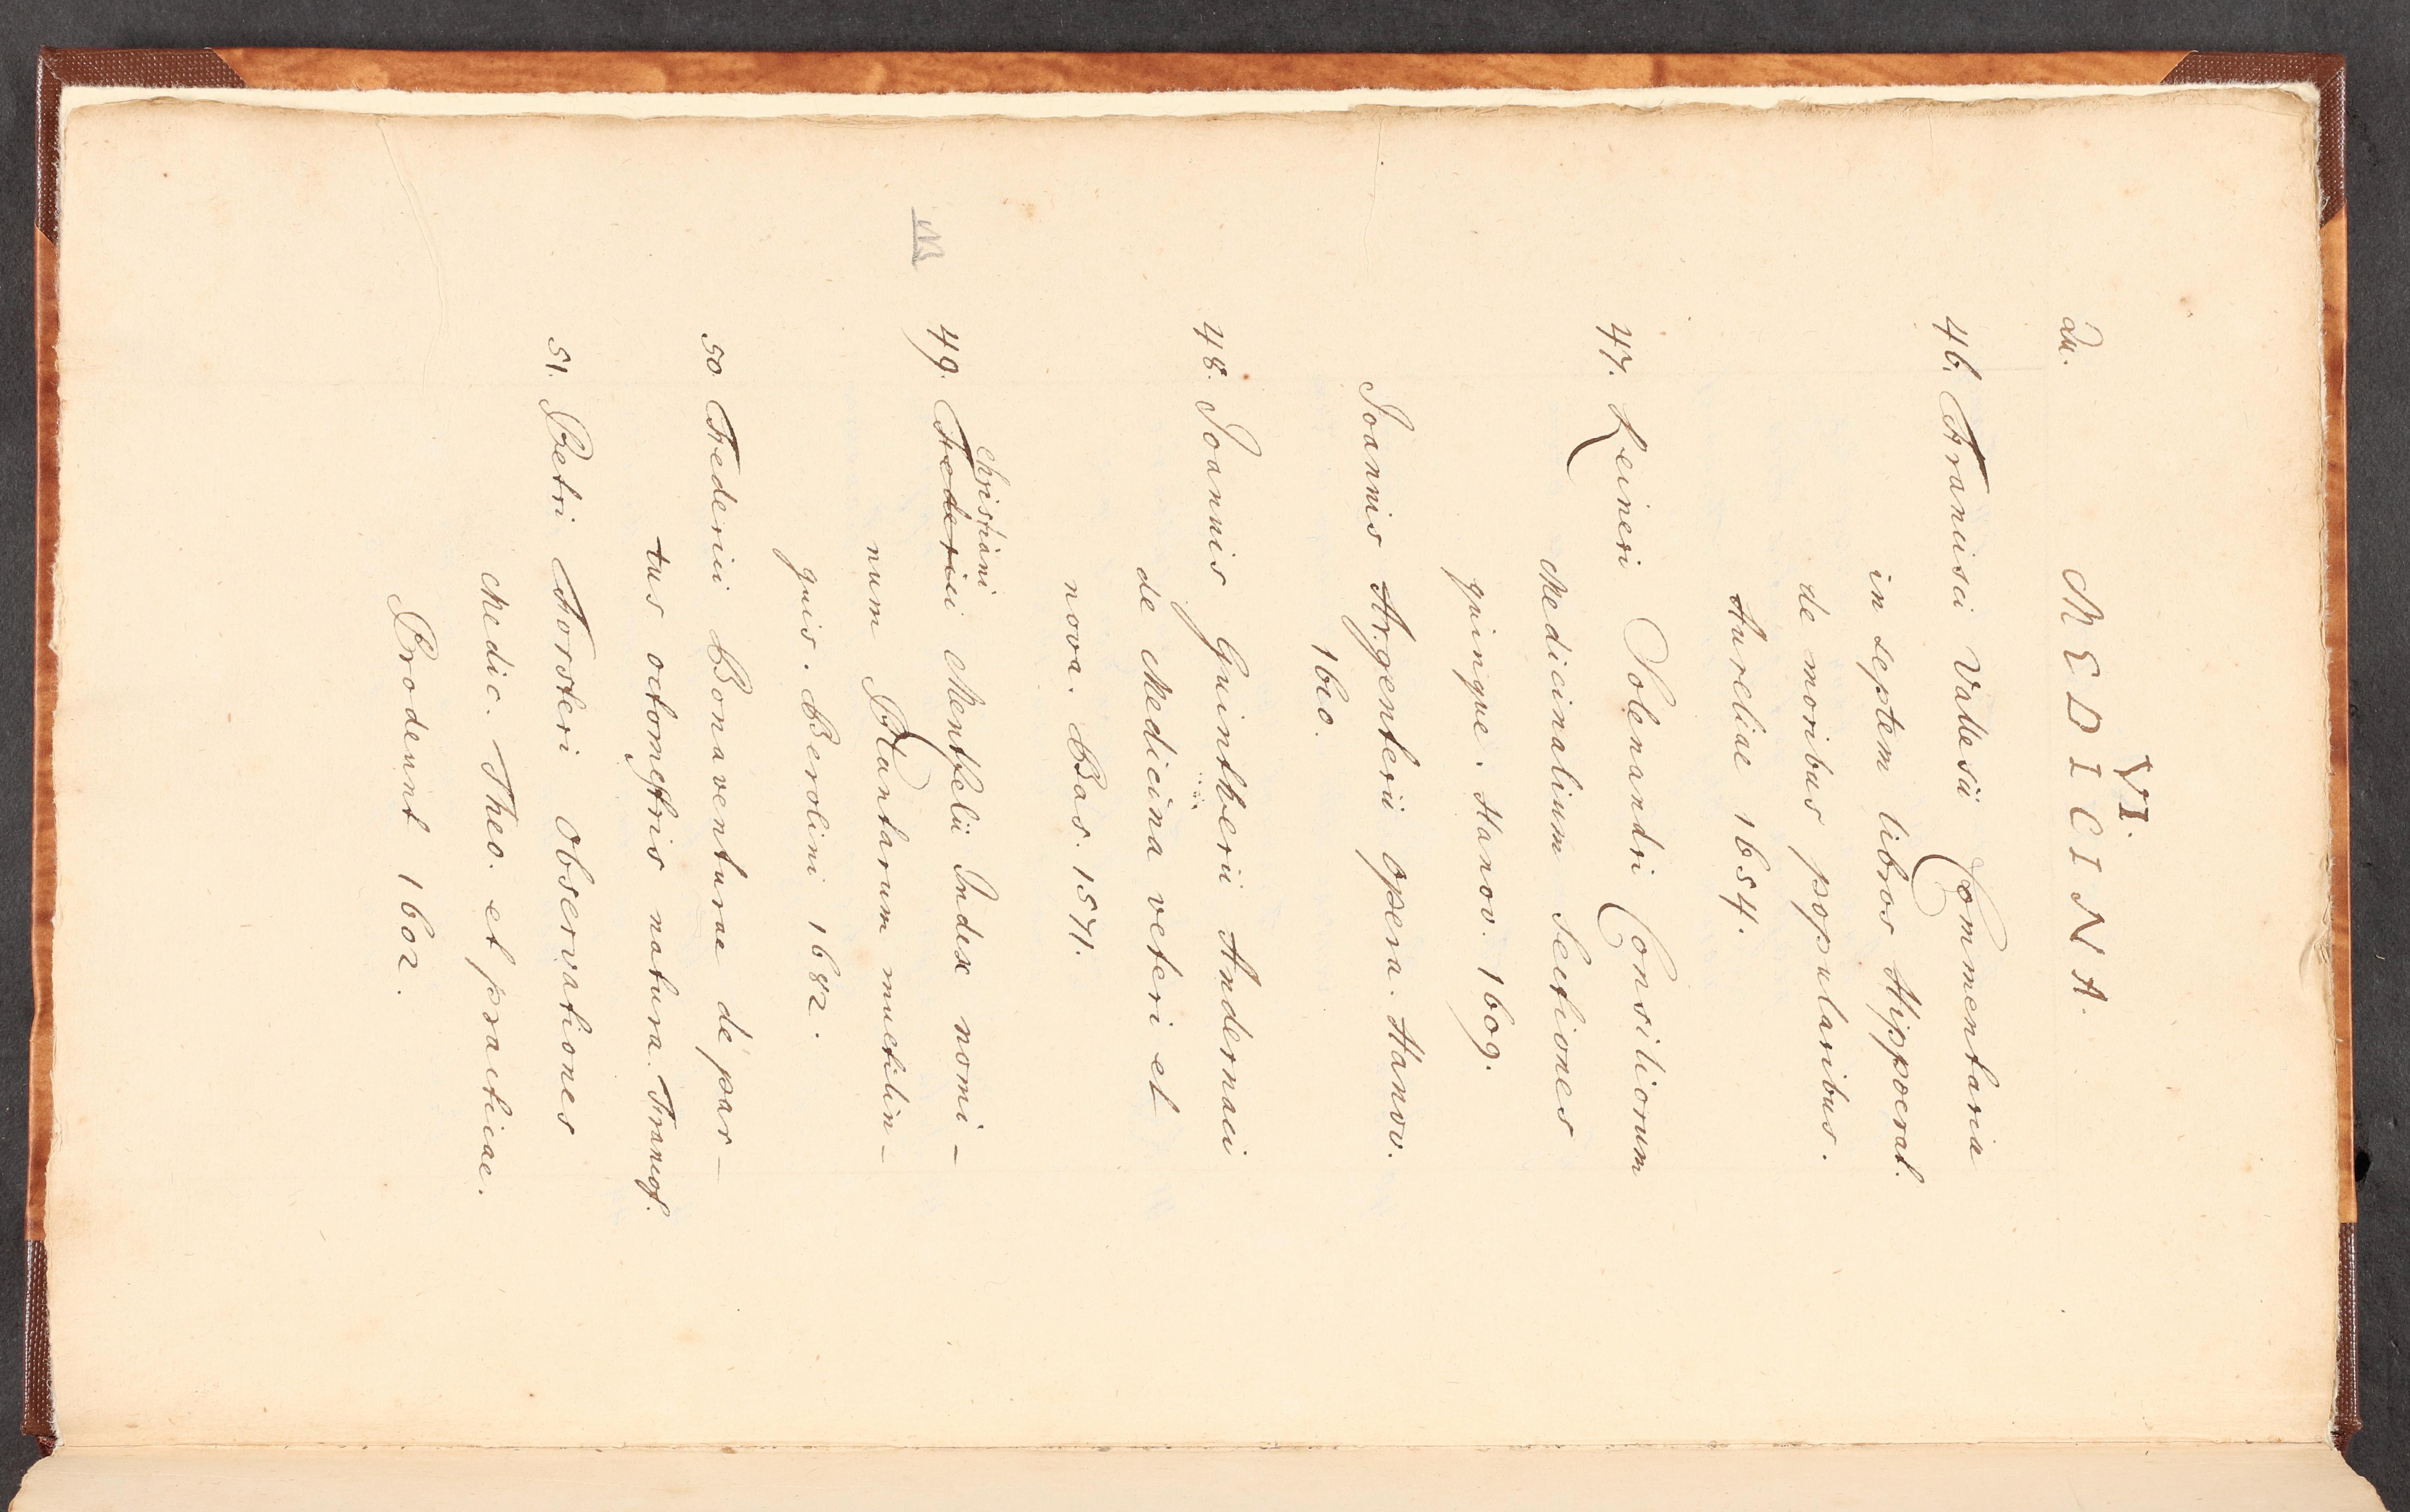 VI.
MEDICINA.
Qu.
46. Francisci Vallesii Commentaria
in septem libros Hippocrat.
de moribus popularibus.
Aureliae 1654.
47. Reineri Solenandri Consiliorum
Medicinalium Sectiones
quinque. Hanov. 1609.
Joannis Argenterii opera. Hanov.
1610.
48. Joannis Guintherii Andernaci
de Medicina veteri et
nova. Bas. 1571.
christiani
NB 49. Federici Mentfelii Index nomi-
num Plantarum multilin-
guis. Berolini 1682.
50 Federici Bonaventurae de par-
tus octomestris natura. Francof.
51. Petri Forsteri Observationes
Medic. Theo. et practicae.
Prodeunt 1602.